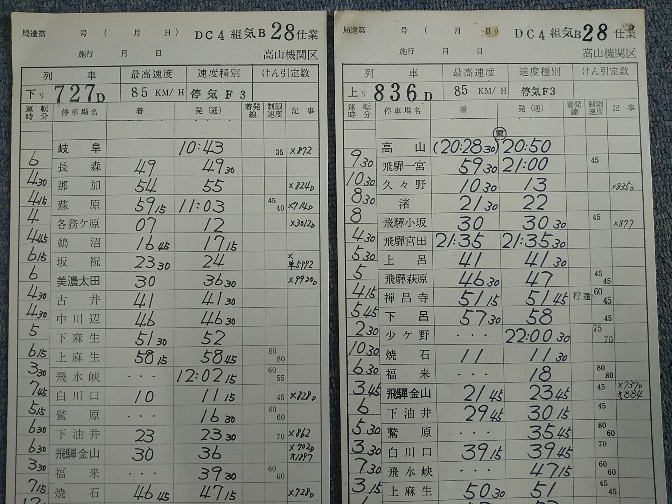 局達第 号( 月 日) DC4組気B28仕業
施行 月 日 高山機関区
列車 最高速度 速度種別 けん引定数
下り 727D 85 KM/H 停気F3
運転時分 停車場名 着 発(通) 着発線 制限速度 記事
岐阜 10:43 35 ×872
6 長森 49 49 30
4 30 那加 54 55 ×824D
4 15 蘇原 59 15 11:03 45 40
4 各務ケ原 07 12 ×3012D
4 45 鵜沼 16 45 17 15
6 15 坂祝 23 30 24
6 美濃太田 30 36 30 ×9920D
4 30 古井 41 41 30
4 30 中川辺 46 46 30
5 下麻生 51 30 52
6 15 上麻生 58 15 58 45 80 80
3 30 飛水峡 ・・・ 12:02 15 60 55
7 45 白川口 10 11 15 45 ×828D
5 15 鷲原 ・・・ 16 30 80 60
6 30 下油井 23 23 30 70 ×862
6 30 飛騨金山 30 36 ×702D
3 30 福来 ・・・ 39 30 80 60
7 15 焼石 46 45 47 15 45 ×728D
局達第 号( 月 日) DC4組気B28仕業
施行 月 日 高山機関区
列車 最高速度 速度種別 けん引定数
上り 836D 85 KM/H 停気F3
運転時分 停車場名 着 発(通) 着発線 制限速度 記事
高山 (20:28 30) 20:50
9 30 飛騨一宮 59 30 21:00 45
10 30 久々野 10 30 13 ×835D
8 30 渚 21 30 22
8 飛騨小坂 30 30 30 45 ×877
4 30 飛騨宮田 21:35 21:35 30
5 30 上呂 41 41 30
5 飛騨萩原 46 30 47 45 45
4 15 禅昌寺 51 15 51 45 行違 60 45
5 45 下呂 57 30 58 45
2 30 少ケ野 22:00 30 75 70
10 30 焼石 11 11 30
6 30 福来 ・・・ 18 80 80
3 45 飛騨金山 21 45 23 45 45 ×737D ×884
6 下油井 29 45 30 15
5 30 鷲原 ・・・ 35 45 80 60
3 30 白川口 39 15 39 45 70
7 30 飛水峡 ・・・ 47 15 60
3 15 上麻生 50 30 51 45